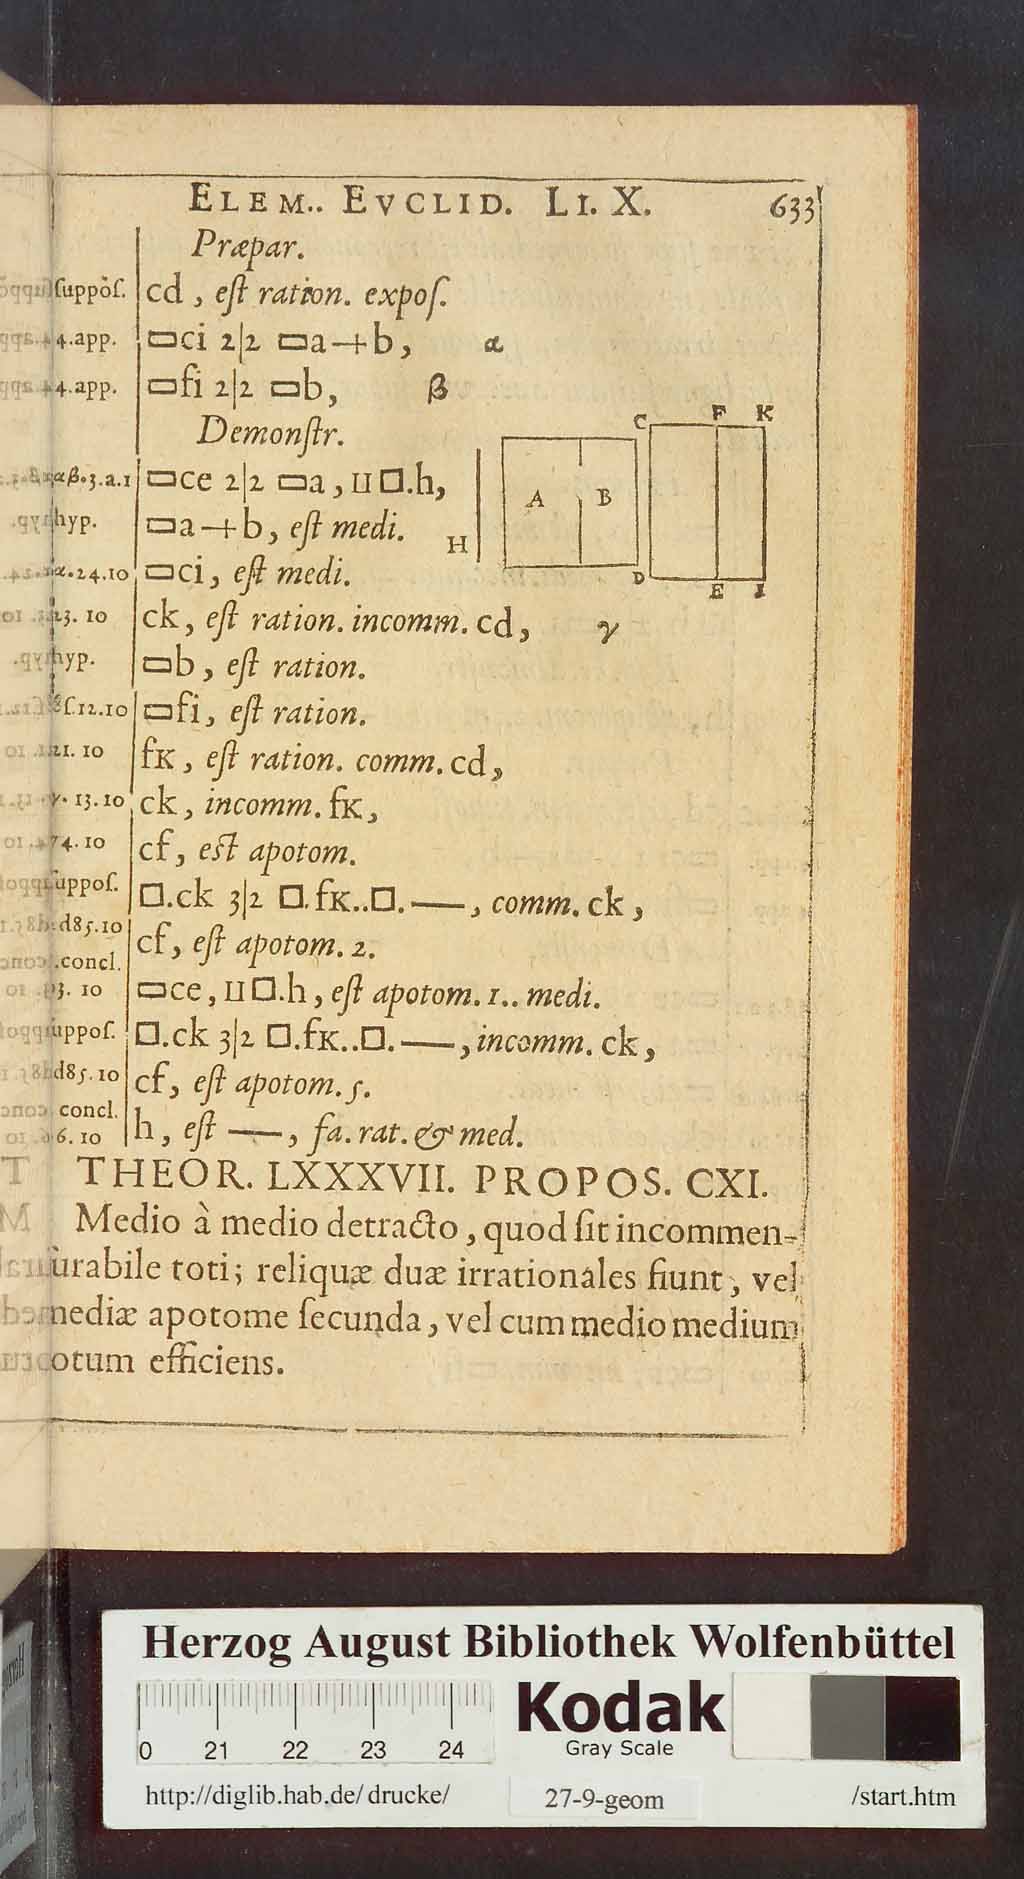 ELEM.. EVCLID. LI. X. 633
Præpar.
ſuppoſ. cd, eſt ration. expoſ.
4.app. ▭ci 2|2 ▭a—+b, α
4.app. ▭fi 2|2 ▭b, β
Demonſtr.
αβ.3.a.1 ▭ce 2|2 ▭a, ⊔□.h,
hyp. ▭a—+b, eſt medi.
α.24.10 ▭ci, eſt medi.
23.10 ck, eſt ration. incomm. cd, γ
hyp. ▭b, eſt ration.
ſ.12.10 ▭fi, eſt ration.
21.10 fK, eſt ration. comm. cd,
γ.13.10 ck, incomm. fK,
74.10 cf, eſt apotom.
ſuppoſ. □.ck 3|2 □.fK..□.——, comm. ck,
d85.10 cf, eſt apotom. 2.
concl.
93.10 ▭ce, ⊔□.h, eſt apotom. 1.. medi.
ſuppoſ. □.ck 3|2 □.fK..□.——, incomm. ck,
d85.10 cf, eſt apotom. 5.
concl.
96.10 h, eſt ——, fa. rat. & med.
C F K
A B
H
D E I
THEOR. LXXXVII. PROPOS. CXI.
Medio à medio detracto, quod ſit incommen-
ſurabile toti; reliquæ duæ irrationales fiunt, vel
mediæ apotome ſecunda, vel cum medio medium
totum efficiens.
Herzog August Bibliothek Wolfenbüttel
0 21 22 23 24
Kodak
Gray Scale
http://diglib.hab.de/drucke/ 27-9-geom /start.htm